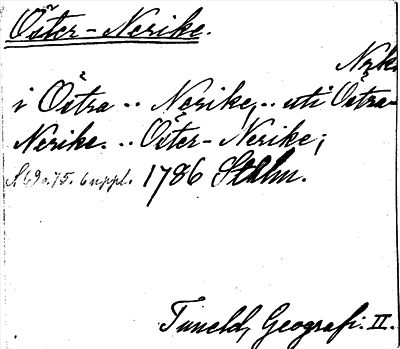 Öster-Nerike.
Nrk.
i Östra .. Nerike, .. uti Östra-
Nerike. .. Öster-Nerike;
S. 69 o. 75. 6 uppl. 1786 Sthlm.
Tuneld, Geografi. II.